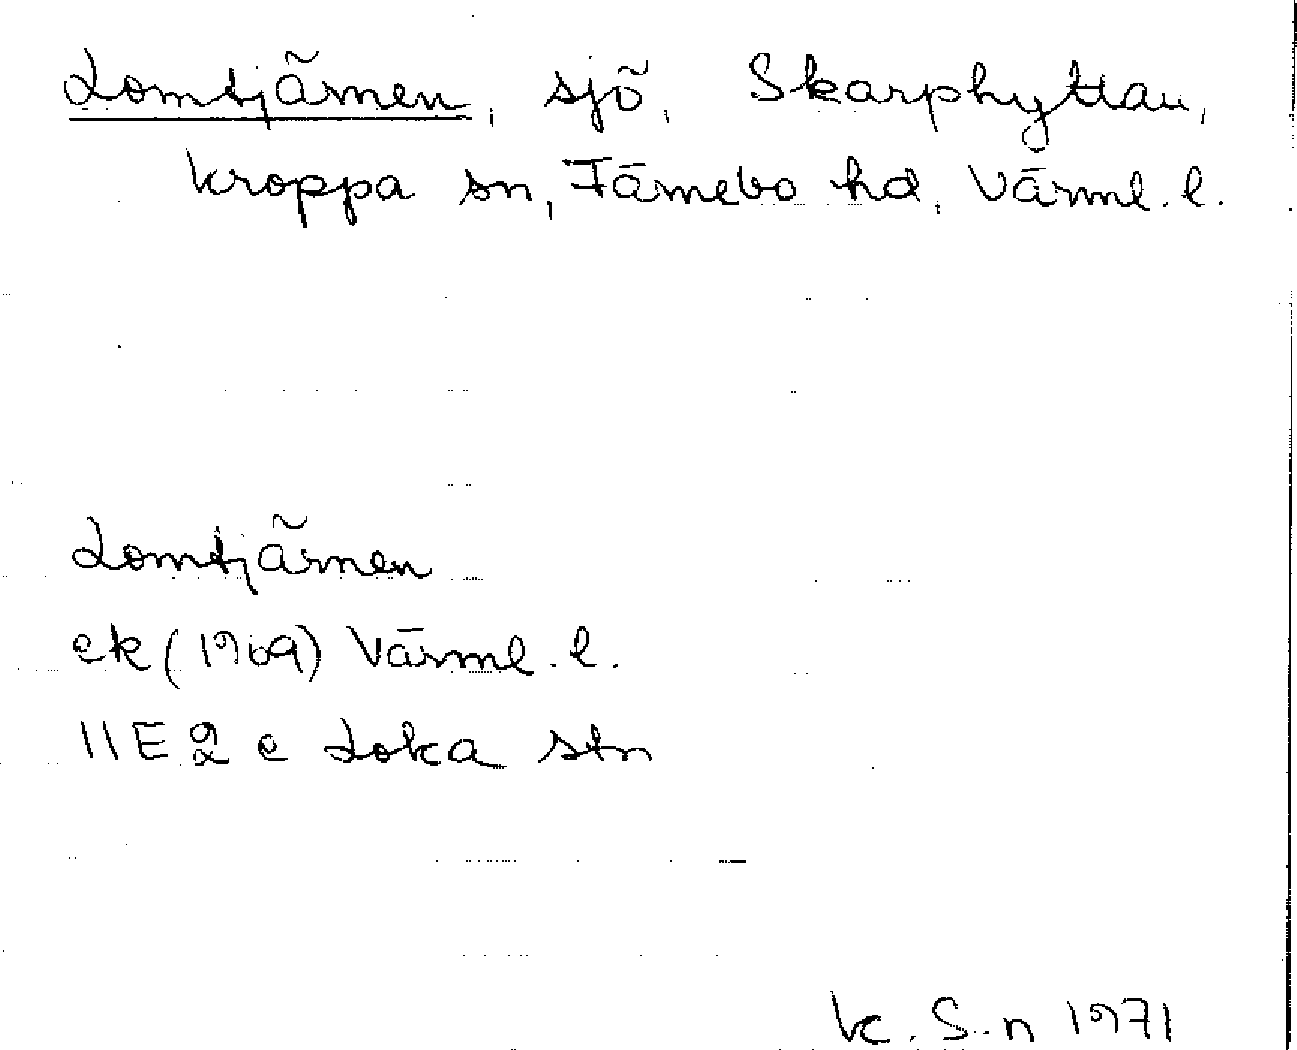 Lomtjärnen, sjö, Skarphyttan,
Kroppa sn, Färnebo hd, Värml. l.
Lomtjärnen
ek (1969) Värml. l.
11E 2 e Loka stn
K. S-n 1971